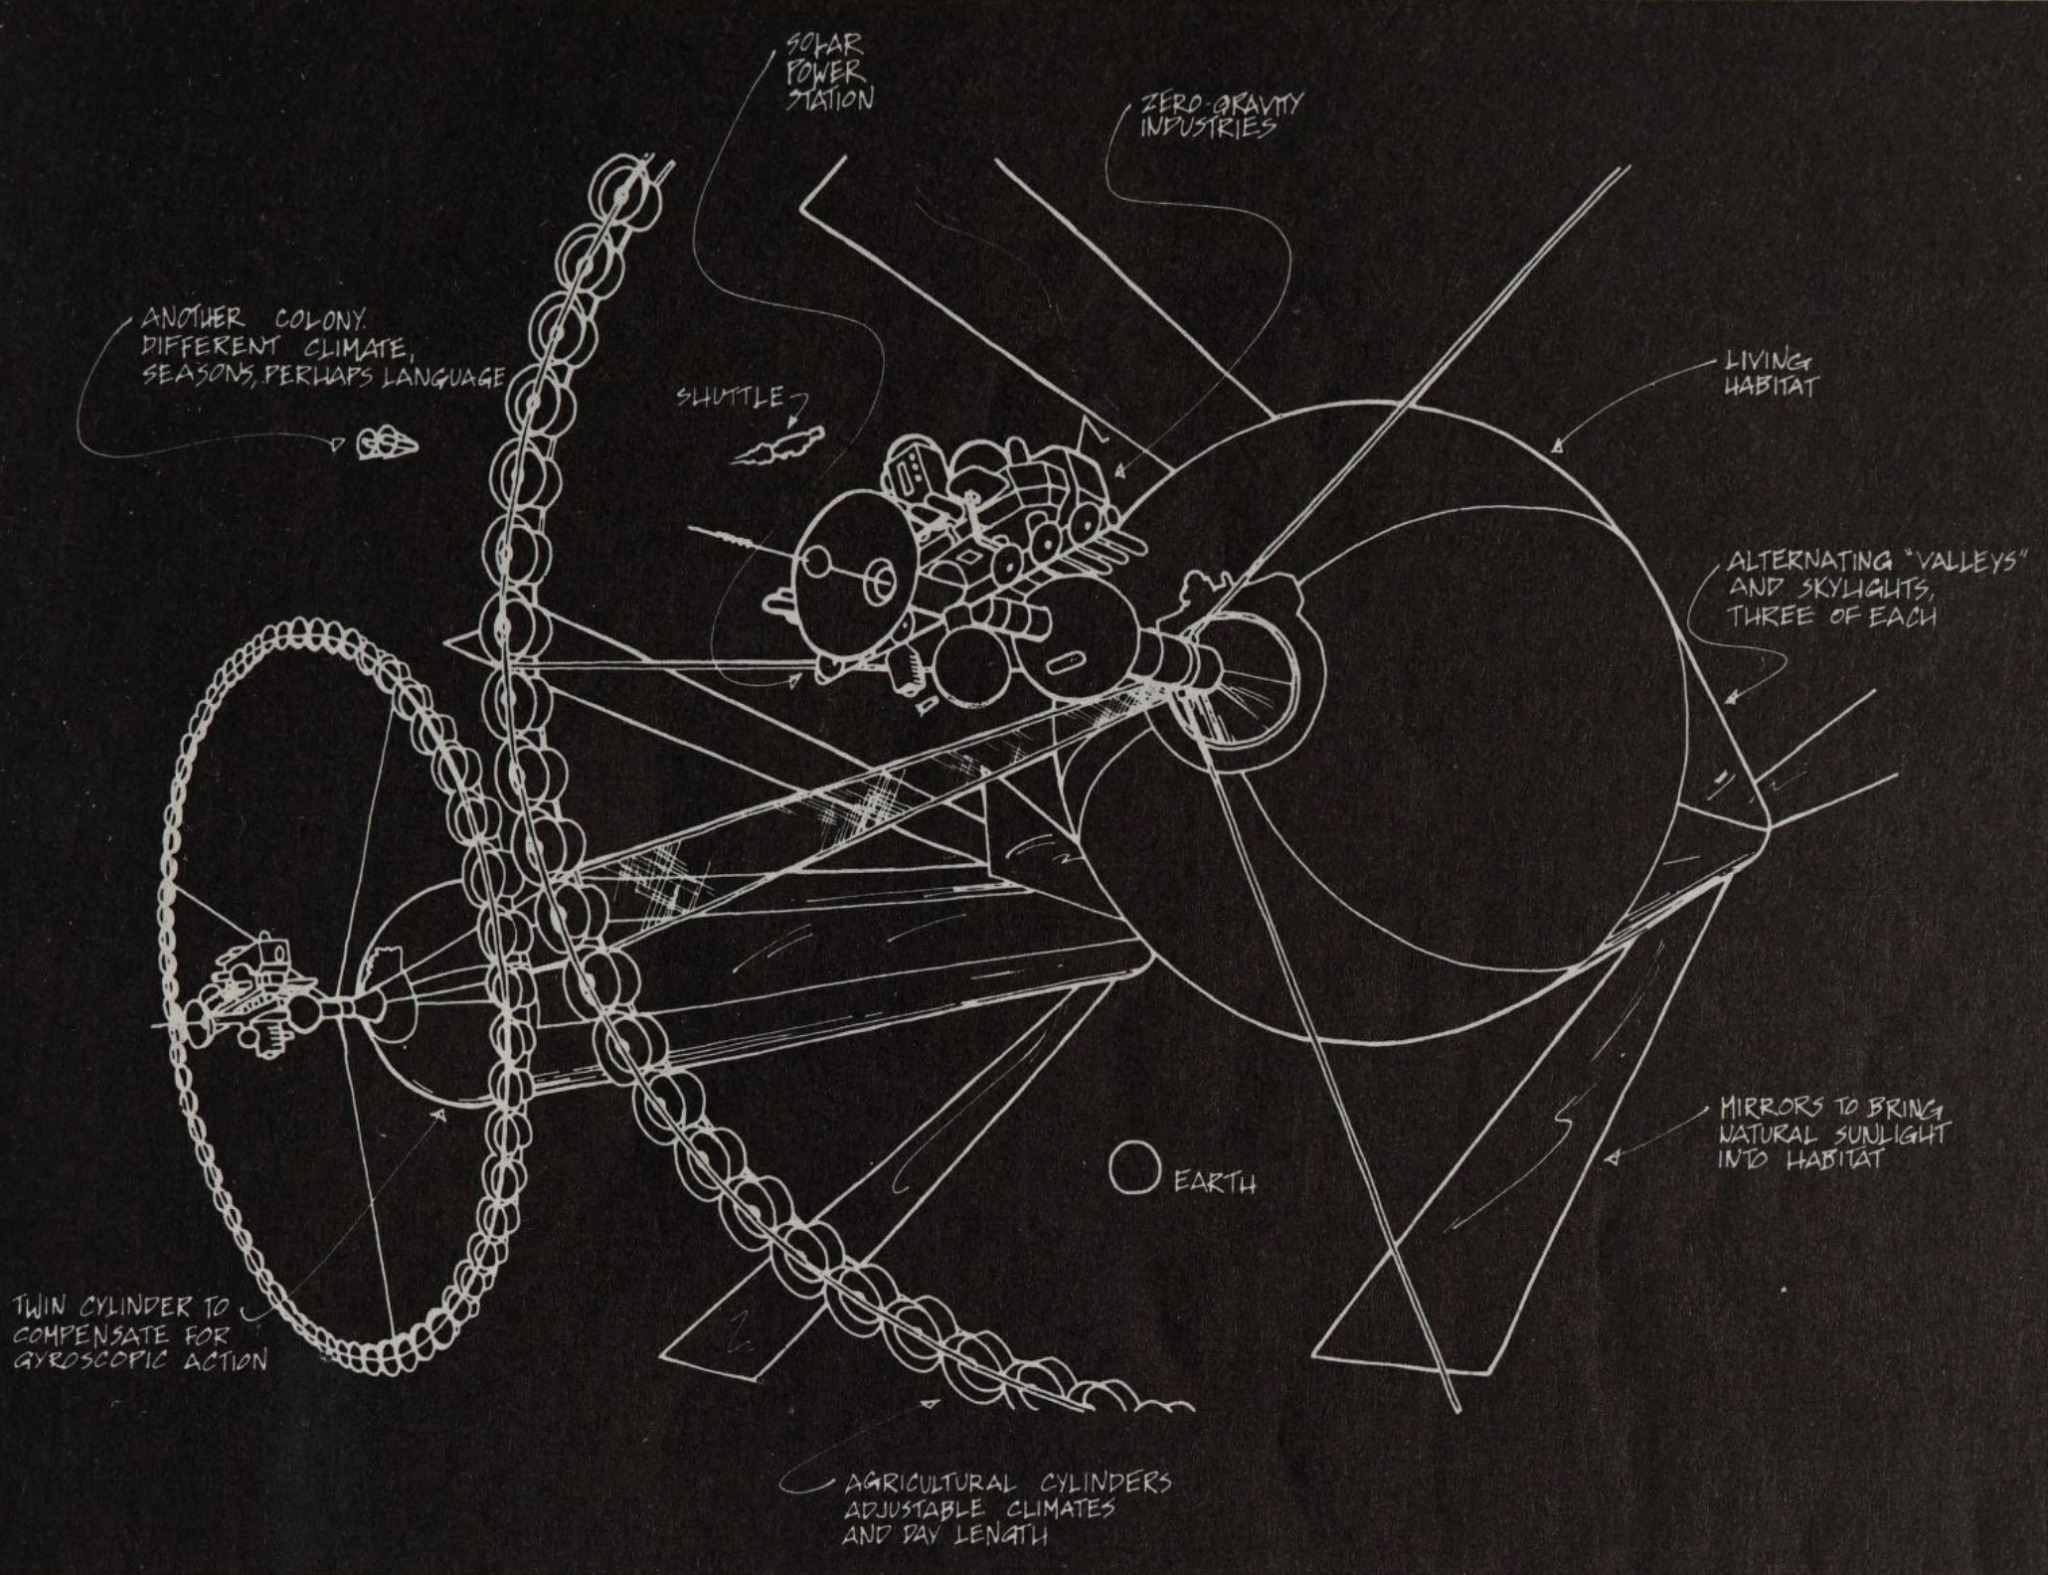 SOLAR
POWER
STATION
ZERO-GRAVITY
INDUSTRIES
ANOTHER COLONY.
DIFFERENT CLIMATE,
SEASONS, PERHAPS LANGUAGE
SHUTTLE
LIVING
HABITAT
ALTERNATING "VALLEYS"
AND SKYLIGHTS,
THREE OF EACH
MIRRORS TO BRING
NATURAL SUNLIGHT
INTO HABITAT
EARTH
TWIN CYLINDER TO
COMPENSATE FOR
GYROSCOPIC ACTION
AGRICULTURAL CYLINDERS
ADJUSTABLE CLIMATES
AND DAY LENGTH